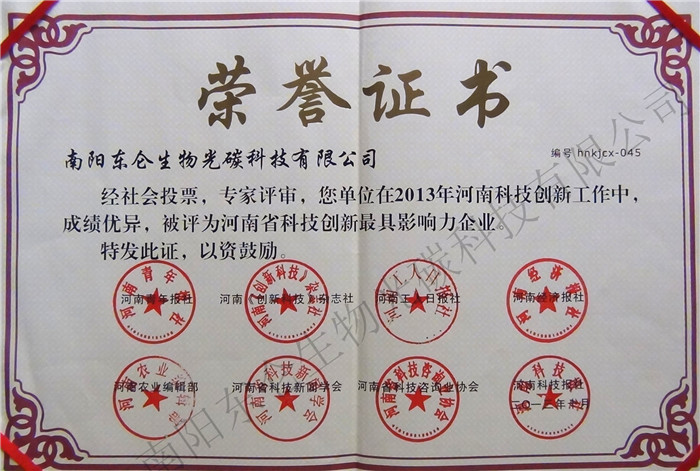 荣誉证书
南阳东仑生物光碳科技有限公司
编号 hnkjcx-045
经社会投票，专家评审，您单位在2013年河南科技创新工作中，
成绩优异，被评为河南省科技创新最具影响力企业。
特发此证，以资鼓励。
河南青年报社 河南《创新科技》杂志社 河南工人日报社 河南经济报社
河南农业编辑部 河南省科技新闻学会 河南省科技咨询业协会 河南科技报社
南阳东仑生物光碳科技有限公司